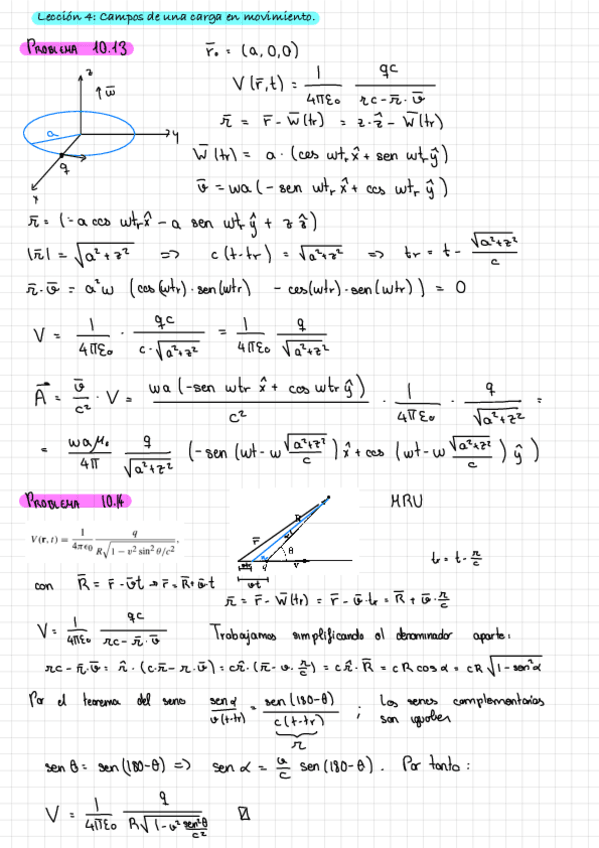 Lección 4: Campos de una carga en movimiento.
PROBLEMA 10.13
r̄₀ = (a, 0, 0)
z
↑ w̄
a
y
q
x
V(r̄,t) = 1/(4πε₀) qc/(rc - r̄·v̄)
r̄ = r̄ - W̄(tr) = z·ẑ - W̄(tr)
W̄(tr) = a·(cos wtr x̂ + sen wtr ŷ)
v̄ = wa(-sen wtr x̂ + cos wtr ŷ)
r̄ = (-a cos wtr x̂ - a sen wtr ŷ + z ẑ)
|r̄| = √(a²+z²) => c(t-tr) = √(a²+z²) => tr = t - √(a²+z²)/c
r̄·v̄ = a²w (cos(wtr)·sen(wtr) - cos(wtr)·sen(wtr)) = 0
V = 1/(4πε₀) · qc/(c·√(a²+z²)) = 1/(4πε₀) q/√(a²+z²)
A⃗ = v̄/c² · V = wa(-sen wtr x̂ + cos wtr ŷ)/c² · 1/(4πε₀) · q/√(a²+z²) =
= waμ₀/4π q/√(a²+z²) (-sen(wt - w √(a²+z²)/c) x̂ + cos(wt - w √(a²+z²)/c) ŷ)
PROBLEMA 10.14
MRU
V(r, t) = 1/(4πε₀) q/(R√(1 - v² sin² θ/c²)),
r̄
R
α
θ
v
v̄t
tr = t - r/c
con R̄ = r̄ - v̄t → r̄ = R̄ + v̄·t
r̄ = r̄ - W̄(tr) = r̄ - v̄·tr = R̄ + v̄·r/c
V = 1/(4πε₀) qc/(rc - r̄·v̄) Trabajamos simplificando el denominador aparte:
rc - r̄·v̄ = r̂·(c·r̄ - r·v̄) = cr̂·(r̄ - v·r/c) = cr̂·R̄ = cR cos α = cR√(1-sen²α)
Por el teorema del seno senα/(v(t-tr)) = sen(180-θ)/(c(t-tr)) ; Los senos complementarios son iguales
r
sen θ = sen(180-θ) => sen α = v/c sen(180-θ). Por tanto:
V = 1/(4πε₀) q/(R√(1 - v² sen²θ/c²))